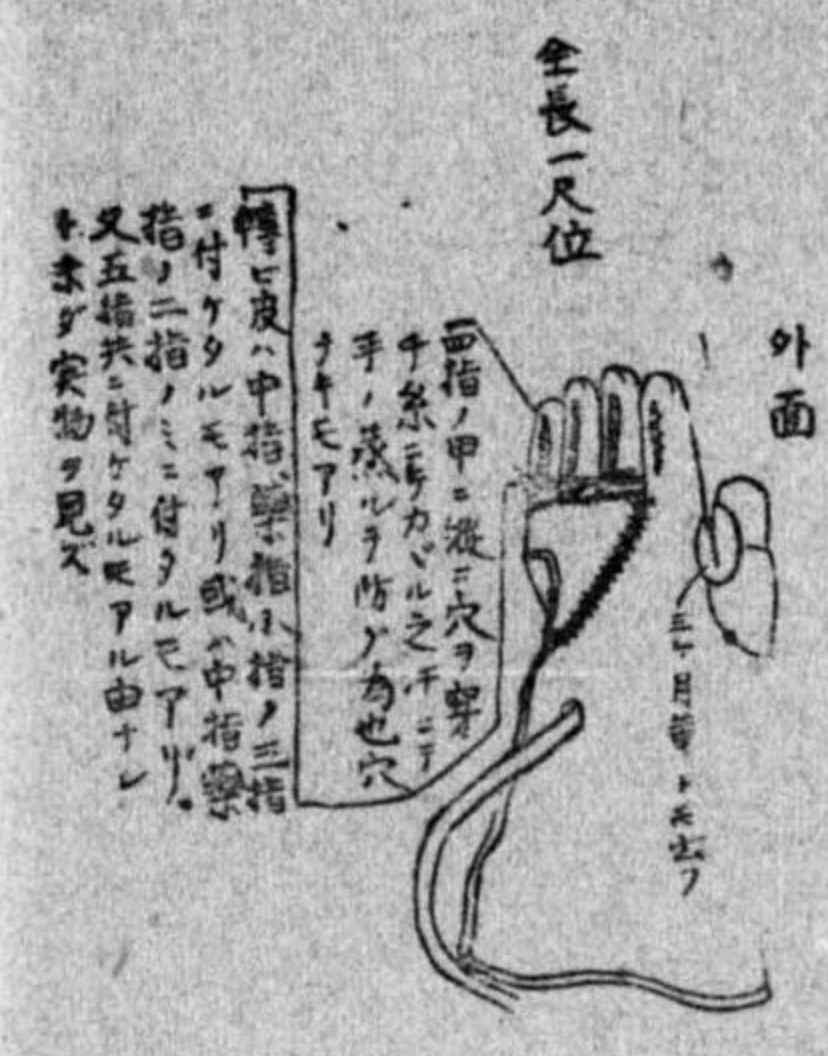 外面
三ケ月革トモ云フ
全長一尺位
四指ノ甲ニ縦ニ穴ヲ穿
チ糸ニテカヾル之汗ニテ
手ノ蒸ルヲ防グ為也穴
ナキモアリ
ヒ皮ハ中指、薬指、小指ノ三指
ニ付ケタルモアリ或ハ中指薬
指ノ二指ノミニ付タルモアリ。
又五指共ニ付ケタルモアル由ナレ
ト未ダ実物ヲ見ズ